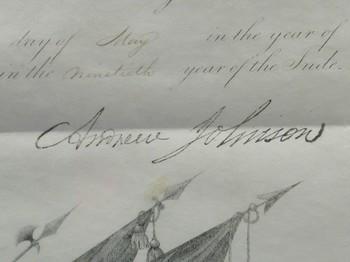 day of May in the year of
in the ninetieth year of the Inde-
Andrew Johnson